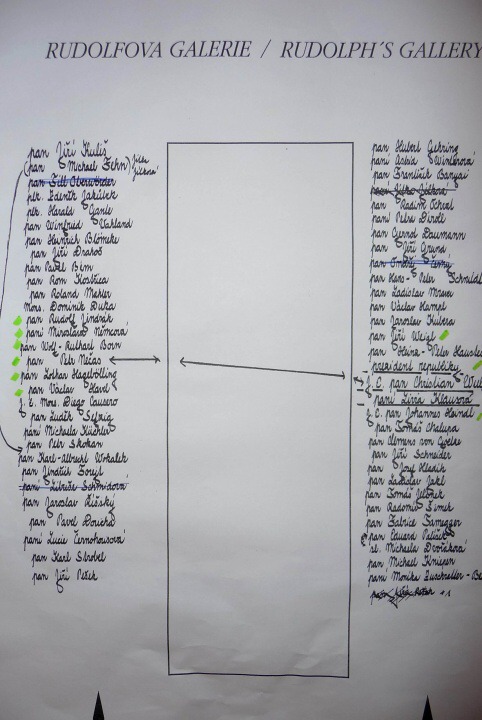 RUDOLFOVA GALERIE / RUDOLPH'S GALLERY
pan Jiří Kuliš
(pan Michael Zehn) Jitka
pan Till Oberwörder
plk. Zdeněk Jakůbek
plk. Harald Gante
pan Winfried Vahland
pan Heinrich Blömeke
pan Jiří Drahoš
pan Pavel Bém
pan Rom Kostřica
pan Roland Mahler
Mons. Dominik Duka
pan Rudolf Jindrák
paní Miroslava Němcová
pan Wolf-Ruthart Born
pan Petr Nečas
pan Lothar Hagebölling
pan Václav Havel
J. E. Mons. Diego Causero
pan Luděk Sefzig
paní Michaela Küchler
pan Petr Skokan
pan Karl-Albrecht Wokalek
pan Jindřich Forejt
paní Libuše Schmidová
pan Jaroslav Kišský
pan Pavel Doucha
paní Lucie Černohousová
pan Karl Strobel
pan Jiří Peřek
pan Hubert Gehring
paní Astrid Winterová
pan František Banyai
pan Radim Ochvat
paní Petra Diroll
pan Gernot Daumann
pan Jiří Grund
pan Ondřej Černý
pan Hans-Peter
pan Ladislav Mravec
pan Václav Hampl
pan Jaroslav Kubera
pan Jiří Weigl
pan Heinz-Peter
president republiky
J. E. pan Christian
paní Livia Klausová
J. E. pan Johannes Haindl
pan Tomáš Chalupa
pan Clemens von Goetze
pan Jiří Schneider
pan Josef Hladík
pan Ladislav Jakl
pan Tomáš Jelínek
pan Radomír Šimek
pan Fabrice
pan Eduard
sl. Michaela Dvořáková
pan Michael Knüppen
paní Monika